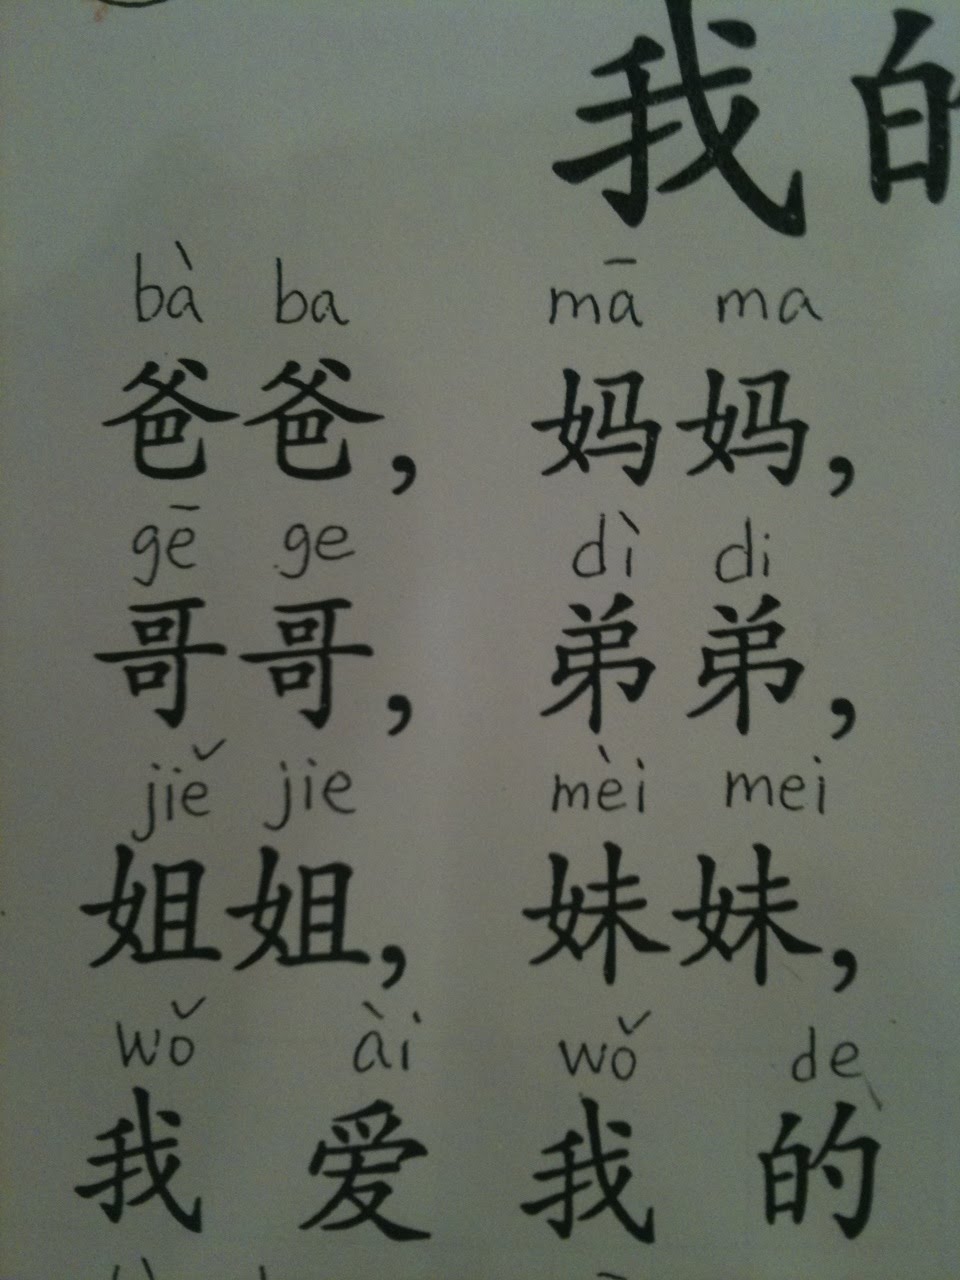 我的
bà ba mā ma
爸爸，妈妈，
gē ge dì di
哥哥，弟弟，
jiě jie mèi mei
姐姐，妹妹，
wǒ ài wǒ de
我爱我的